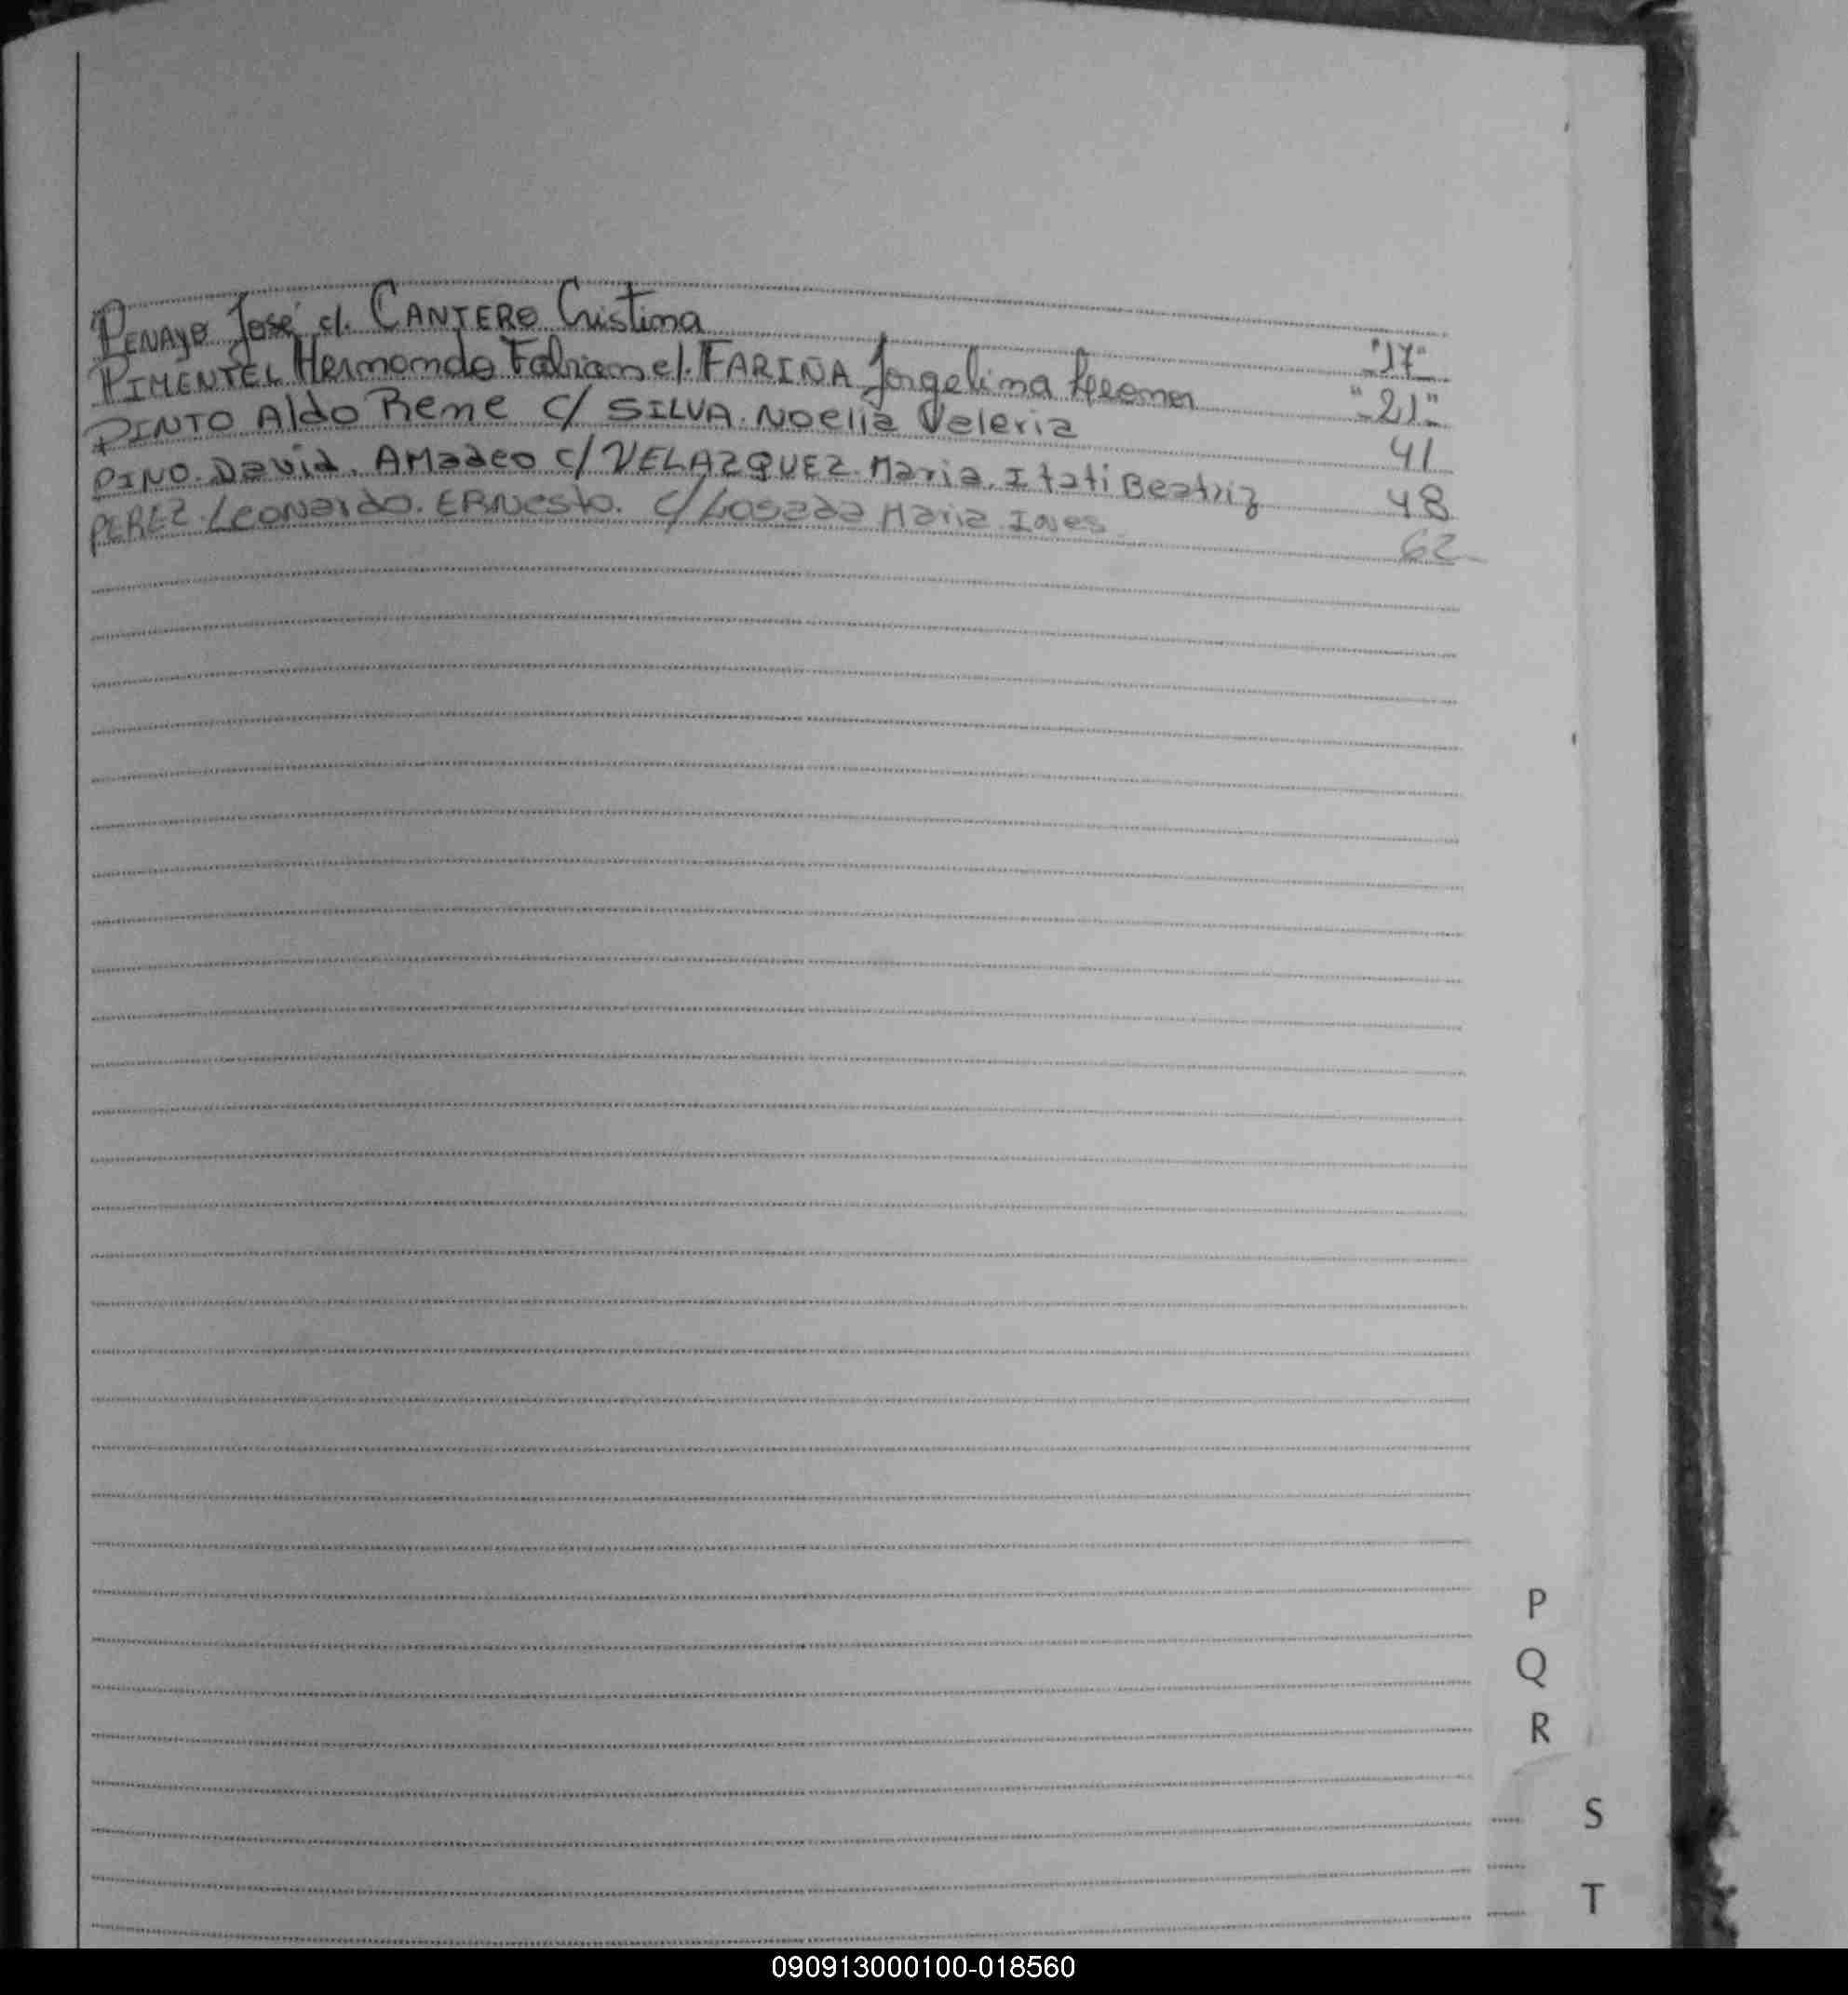 PENAYO José c/. CANTERO Cristina "17"
PIMENTEL Hernando Fabian c/. FARIÑA Jorgelina "21"
PINTO Aldo Rene c/ SILVA. Noelia Valeria 41
PINO. David. Amadeo c/ VELAZQUEZ. Maria. Itati Beatriz 48
PEREZ. Leonardo. ERNesto. c/ Losada Maria Ines 62
P
Q
R
S
T
090913000100-018560